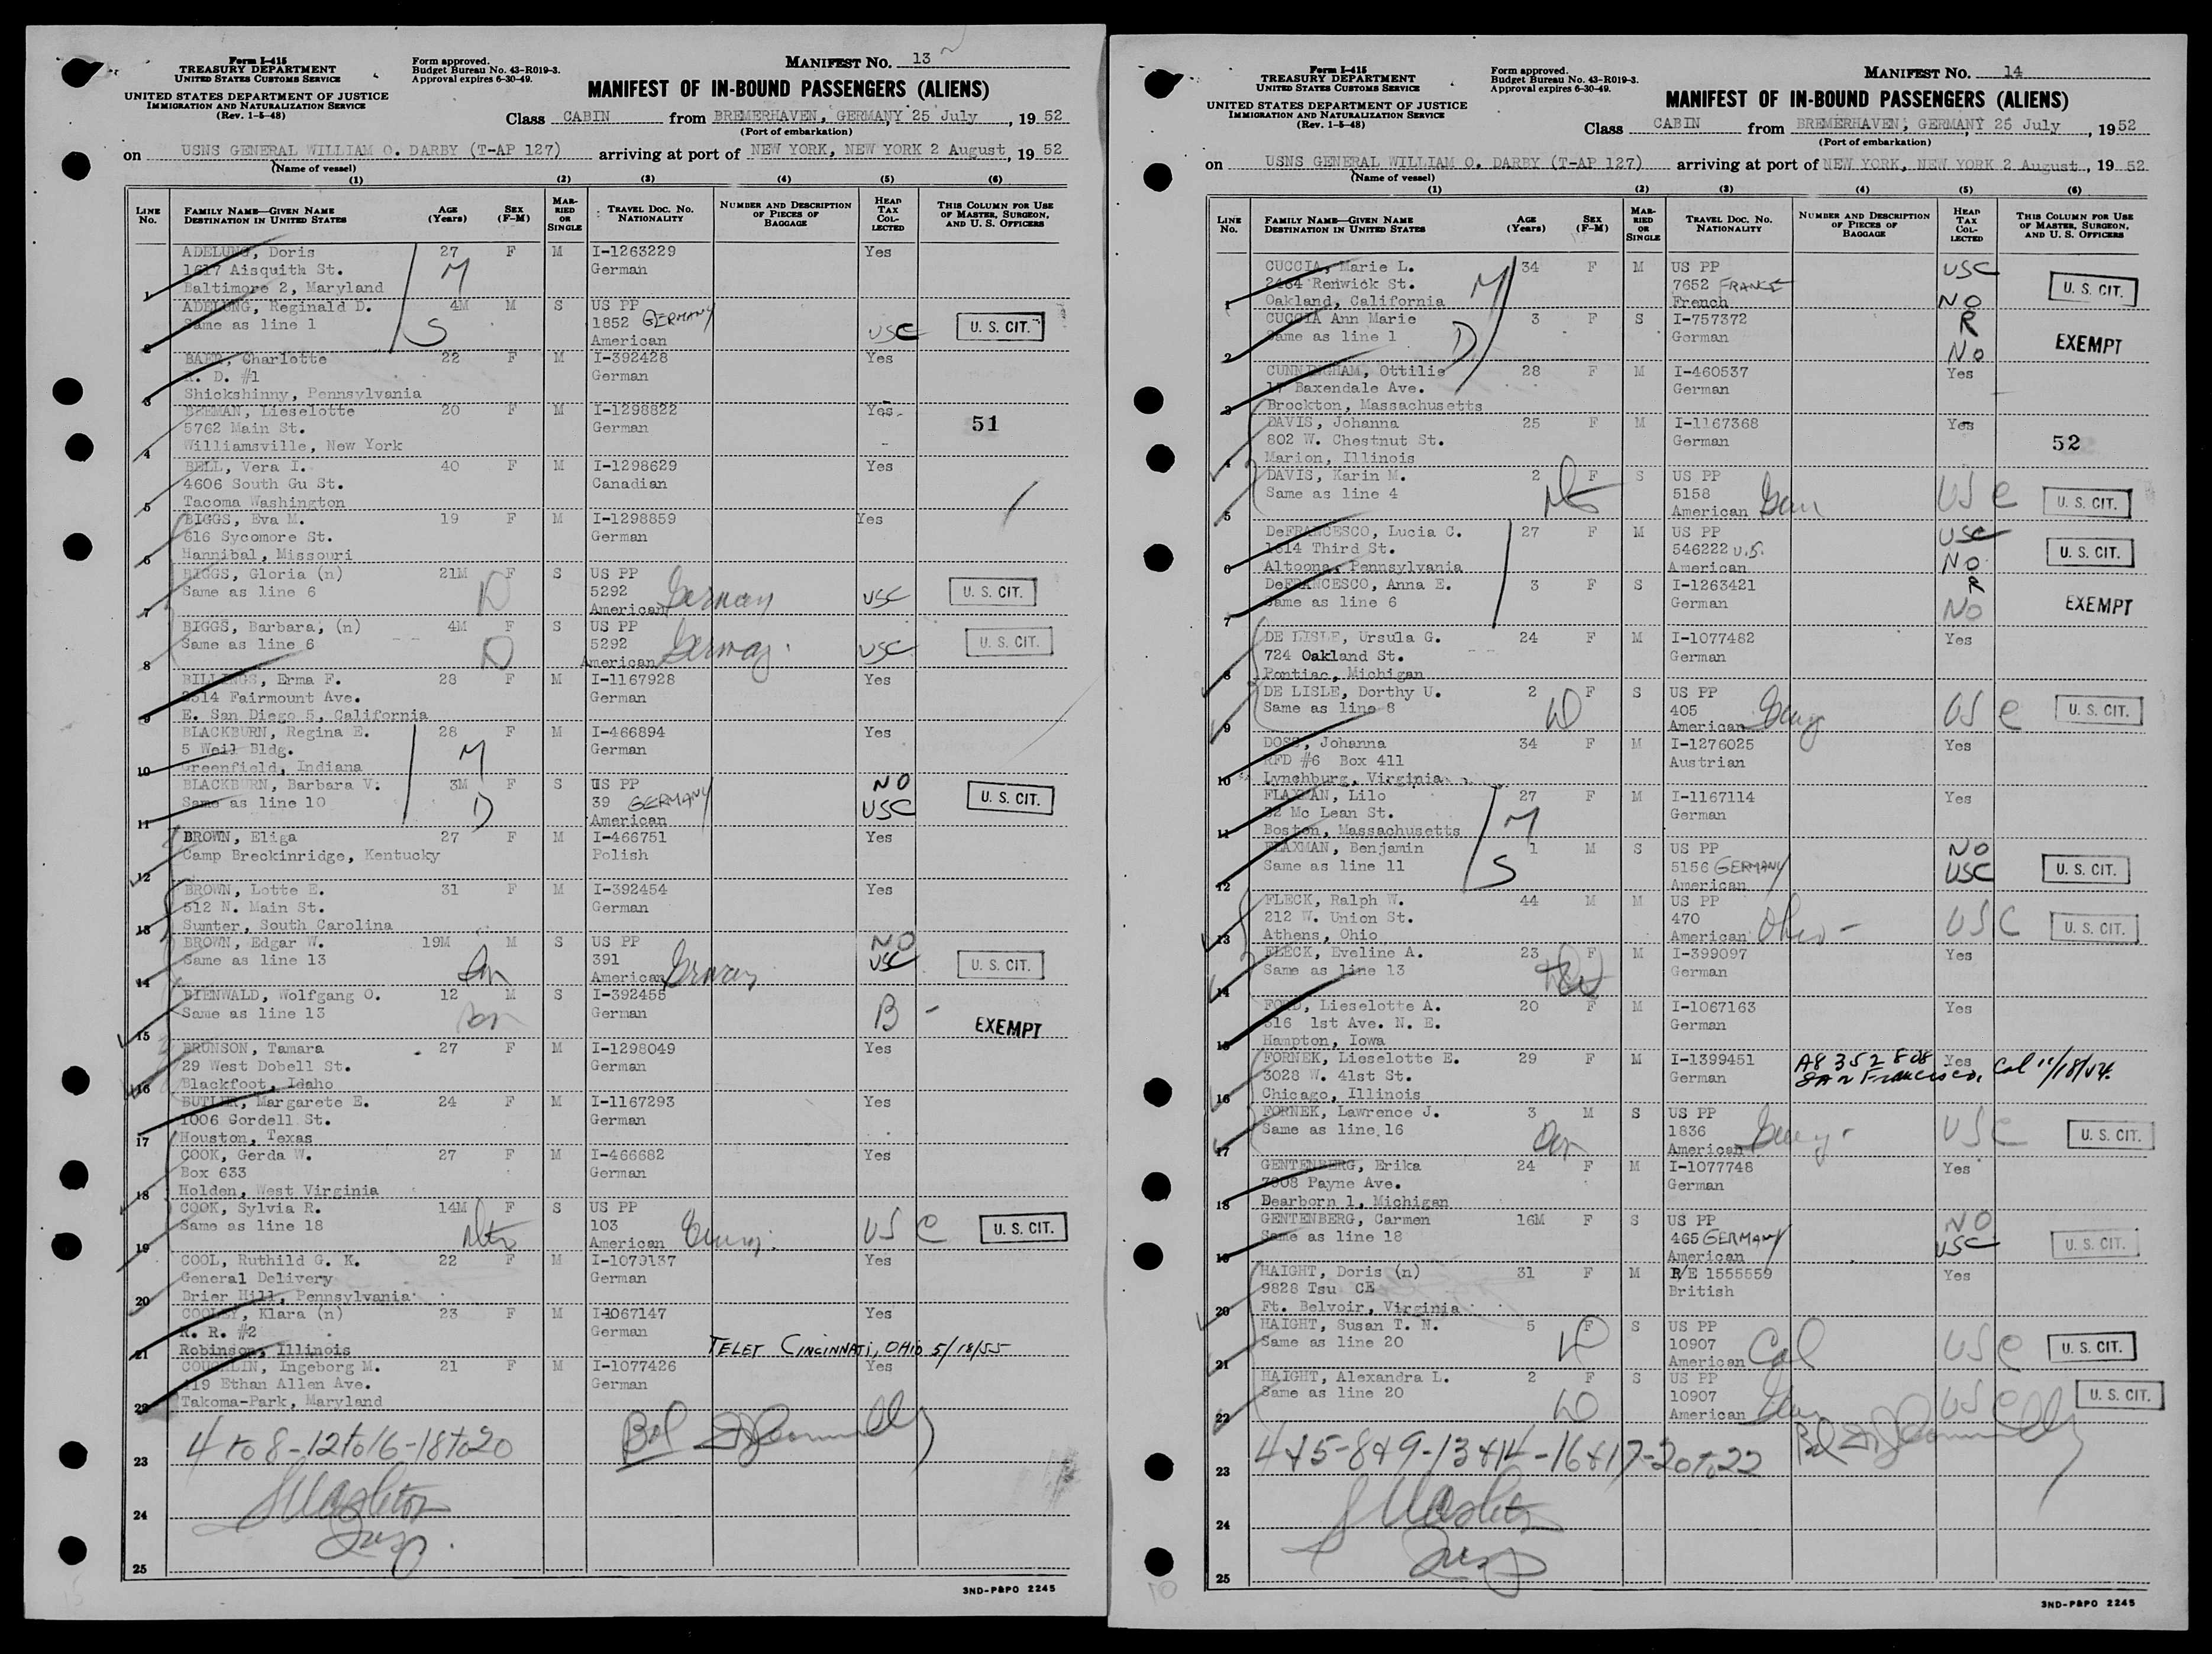 Form I-415
TREASURY DEPARTMENT
UNITED STATES CUSTOMS SERVICE
UNITED STATES DEPARTMENT OF JUSTICE
IMMIGRATION AND NATURALIZATION SERVICE
(Rev. 1-5-48)
Form approved.
Budget Bureau No. 43-R019-3.
Approval expires 6-30-49.
MANIFEST No. 13
MANIFEST OF IN-BOUND PASSENGERS (ALIENS)
Class CABIN from BREMERHAVEN, GERMANY 25 July, 1952
(Port of embarkation)
on USNS GENERAL WILLIAM O. DARBY (T-AP 127) arriving at port of NEW YORK, NEW YORK 2 August, 1952
(Name of vessel)
(1) (2) (3) (4) (5) (6)
LINE No. FAMILY NAME—GIVEN NAME DESTINATION IN UNITED STATES AGE (Years) SEX (F-M) MARRIED OR SINGLE TRAVEL DOC. No. NATIONALITY NUMBER AND DESCRIPTION OF PIECES OF BAGGAGE HEAD TAX COLLECTED THIS COLUMN FOR USE OF MASTER, SURGEON, AND U. S. OFFICERS
ADELUNG, Doris 27 F M I-1263229 Yes
1617 Aisquith St. M German
1 Baltimore 2, Maryland
ADELUNG, Reginald D. 4M M S US PP
Same as line 1 S 1852 GERMANY USC U. S. CIT.
2 American
BAER, Charlotte 22 F M I-392428 Yes
R. D. #1 German
3 Shickshinny, Pennsylvania
BEEMAN, Lieselotte 20 F M I-1298822 Yes
5762 Main St. German 51
4 Williamsville, New York
BELL, Vera I. 40 F M I-1298629 Yes
4606 South Gu St. Canadian
5 Tacoma Washington
BIGGS, Eva M. 19 F M I-1298859 Yes
616 Sycomore St. German
6 Hannibal, Missouri
BIGGS, Gloria (n) 21M F S US PP
Same as line 6 D 5292 USC U. S. CIT.
7 American Germany
BIGGS, Barbara, (n) 4M F S US PP
Same as line 6 D 5292 USC U. S. CIT.
8 American Germany
BILLINGS, Erma F. 28 F M I-1167928 Yes
3514 Fairmount Ave. German
9 E. San Diego 5, California
BLACKBURN, Regina E. 28 F M I-466894 Yes
5 Weil Bldg. M German
10 Greenfield, Indiana
BLACKBURN, Barbara V. 3M F S US PP NO
Same as line 10 D 39 GERMANY USC U. S. CIT.
11 American
BROWN, Eliga 27 F M I-466751 Yes
Camp Breckinridge, Kentucky Polish
12
BROWN, Lotte E. 31 F M I-392454 Yes
512 N. Main St. German
13 Sumter, South Carolina
BROWN, Edgar W. 19M M S US PP NO
Same as line 13 Son 391 USC U. S. CIT.
14 American Germany
BIENWALD, Wolfgang O. 12 M S I-392455
Same as line 13 Son German B - EXEMPT
15
BRUNSON, Tamara 27 F M I-1298049 Yes
29 West Dobell St. German
16 Blackfoot, Idaho
BUTLER, Margarete E. 24 F M I-1167293 Yes
1006 Gordell St. German
17 Houston, Texas
COOK, Gerda W. 27 F M I-466682 Yes
Box 633 German
18 Holden, West Virginia
COOK, Sylvia R. 14M F S US PP
Same as line 18 103 USC U. S. CIT.
19 American Germany
COOL, Ruthild G. K. 22 F M I-1079137 Yes
General Delivery German
20 Brier Hill, Pennsylvania
COOLEY, Klara (n) 23 F M I-1067147 Yes
R. R. #2 German
21 Robinson, Illinois TELET CINCINNATI, OHIO 5/18/55
COUGHLIN, Ingeborg M. 21 F M I-1077426 Yes
119 Ethan Allen Ave. German
22 Takoma-Park, Maryland
23 4 to 8-12 to 16-18 to 20
24
25
3ND-P&PO 2245
Form I-415
TREASURY DEPARTMENT
UNITED STATES CUSTOMS SERVICE
UNITED STATES DEPARTMENT OF JUSTICE
IMMIGRATION AND NATURALIZATION SERVICE
(Rev. 1-5-48)
Form approved.
Budget Bureau No. 43-R019-3.
Approval expires 6-30-49.
MANIFEST No. 14
MANIFEST OF IN-BOUND PASSENGERS (ALIENS)
Class CABIN from BREMERHAVEN, GERMANY 25 July, 1952
(Port of embarkation)
on USNS GENERAL WILLIAM O. DARBY (T-AP 127) arriving at port of NEW YORK, NEW YORK 2 August, 1952
(Name of vessel)
(1) (2) (3) (4) (5) (6)
LINE No. FAMILY NAME—GIVEN NAME DESTINATION IN UNITED STATES AGE (Years) SEX (F-M) MARRIED OR SINGLE TRAVEL DOC. No. NATIONALITY NUMBER AND DESCRIPTION OF PIECES OF BAGGAGE HEAD TAX COLLECTED THIS COLUMN FOR USE OF MASTER, SURGEON, AND U. S. OFFICERS
CUCCIA, Marie L. 34 F M US PP USC
2464 Renwick St. M 7652 FRANCE U. S. CIT.
1 Oakland, California French NO
CUCCIA Ann Marie 3 F S I-757372 R
Same as line 1 D German EXEMPT
2 No
CUNNINGHAM, Ottilie 28 F M I-460537 Yes
17 Baxendale Ave. German
3 Brockton, Massachusetts
DAVIS, Johanna 25 F M I-1167368 Yes
802 W. Chestnut St. German 52
4 Marion, Illinois
DAVIS, Karin M. 2 F S US PP
Same as line 4 5158 USC U. S. CIT.
5 American
DeFRANCESCO, Lucia C. 27 F M US PP USC
1614 Third St. 546222 U.S. U. S. CIT.
6 Altoona, Pennsylvania American NO
DeFRANCESCO, Anna E. 3 F S I-1263421 R
Same as line 6 German NO EXEMPT
7
DE LISLE, Ursula G. 24 F M I-1077482 Yes
724 Oakland St. German
8 Pontiac, Michigan
DE LISLE, Dorthy U. 2 F S US PP
Same as line 8 D 405 USC U. S. CIT.
9 American
DOSS, Johanna 34 F M I-1276025 Yes
RFD #6 Box 411 Austrian
10 Lynchburg, Virginia
FLAXMAN, Lilo 27 F M I-1167114 Yes
32 Mc Lean St. M German
11 Boston, Massachusetts
FLAXMAN, Benjamin 1 M S US PP NO
Same as line 11 S 5156 GERMANY USC U. S. CIT.
12 American
FLECK, Ralph W. 44 M M US PP
212 W. Union St. 470 USC U. S. CIT.
13 Athens, Ohio American Ohio -
FLECK, Eveline A. 23 F M I-399097 Yes
Same as line 13 German
14
FORD, Lieselotte A. 20 F M I-1067163 Yes
516 1st Ave. N. E. German
15 Hampton, Iowa
FORNEK, Lieselotte E. 29 F M I-1399451 A8 352 808 Yes
3028 W. 41st St. German San Francisco, Cal 11/18/54.
16 Chicago, Illinois
FORNEK, Lawrence J. 3 M S US PP
Same as line 16 Son 1836 USC U. S. CIT.
17 American
GENTENBERG, Erika 24 F M I-1077748 Yes
7908 Payne Ave. German
18 Dearborn 1, Michigan
GENTENBERG, Carmen 16M F S US PP NO
Same as line 18 465 GERMANY USC U. S. CIT.
19 American
HAIGHT, Doris (n) 31 F M R/E 1555559 Yes
9828 Tsu CE British
20 Ft. Belvoir, Virginia
HAIGHT, Susan T. N. 5 F S US PP
Same as line 20 D 10907 USC U. S. CIT.
21 American Cal
HAIGHT, Alexandra L. 2 F S US PP
Same as line 20 D 10907 USC U. S. CIT.
22 American
23 4+5-8+9-13+14-16+17-20 to 22
24
25
3ND-P&PO 2245